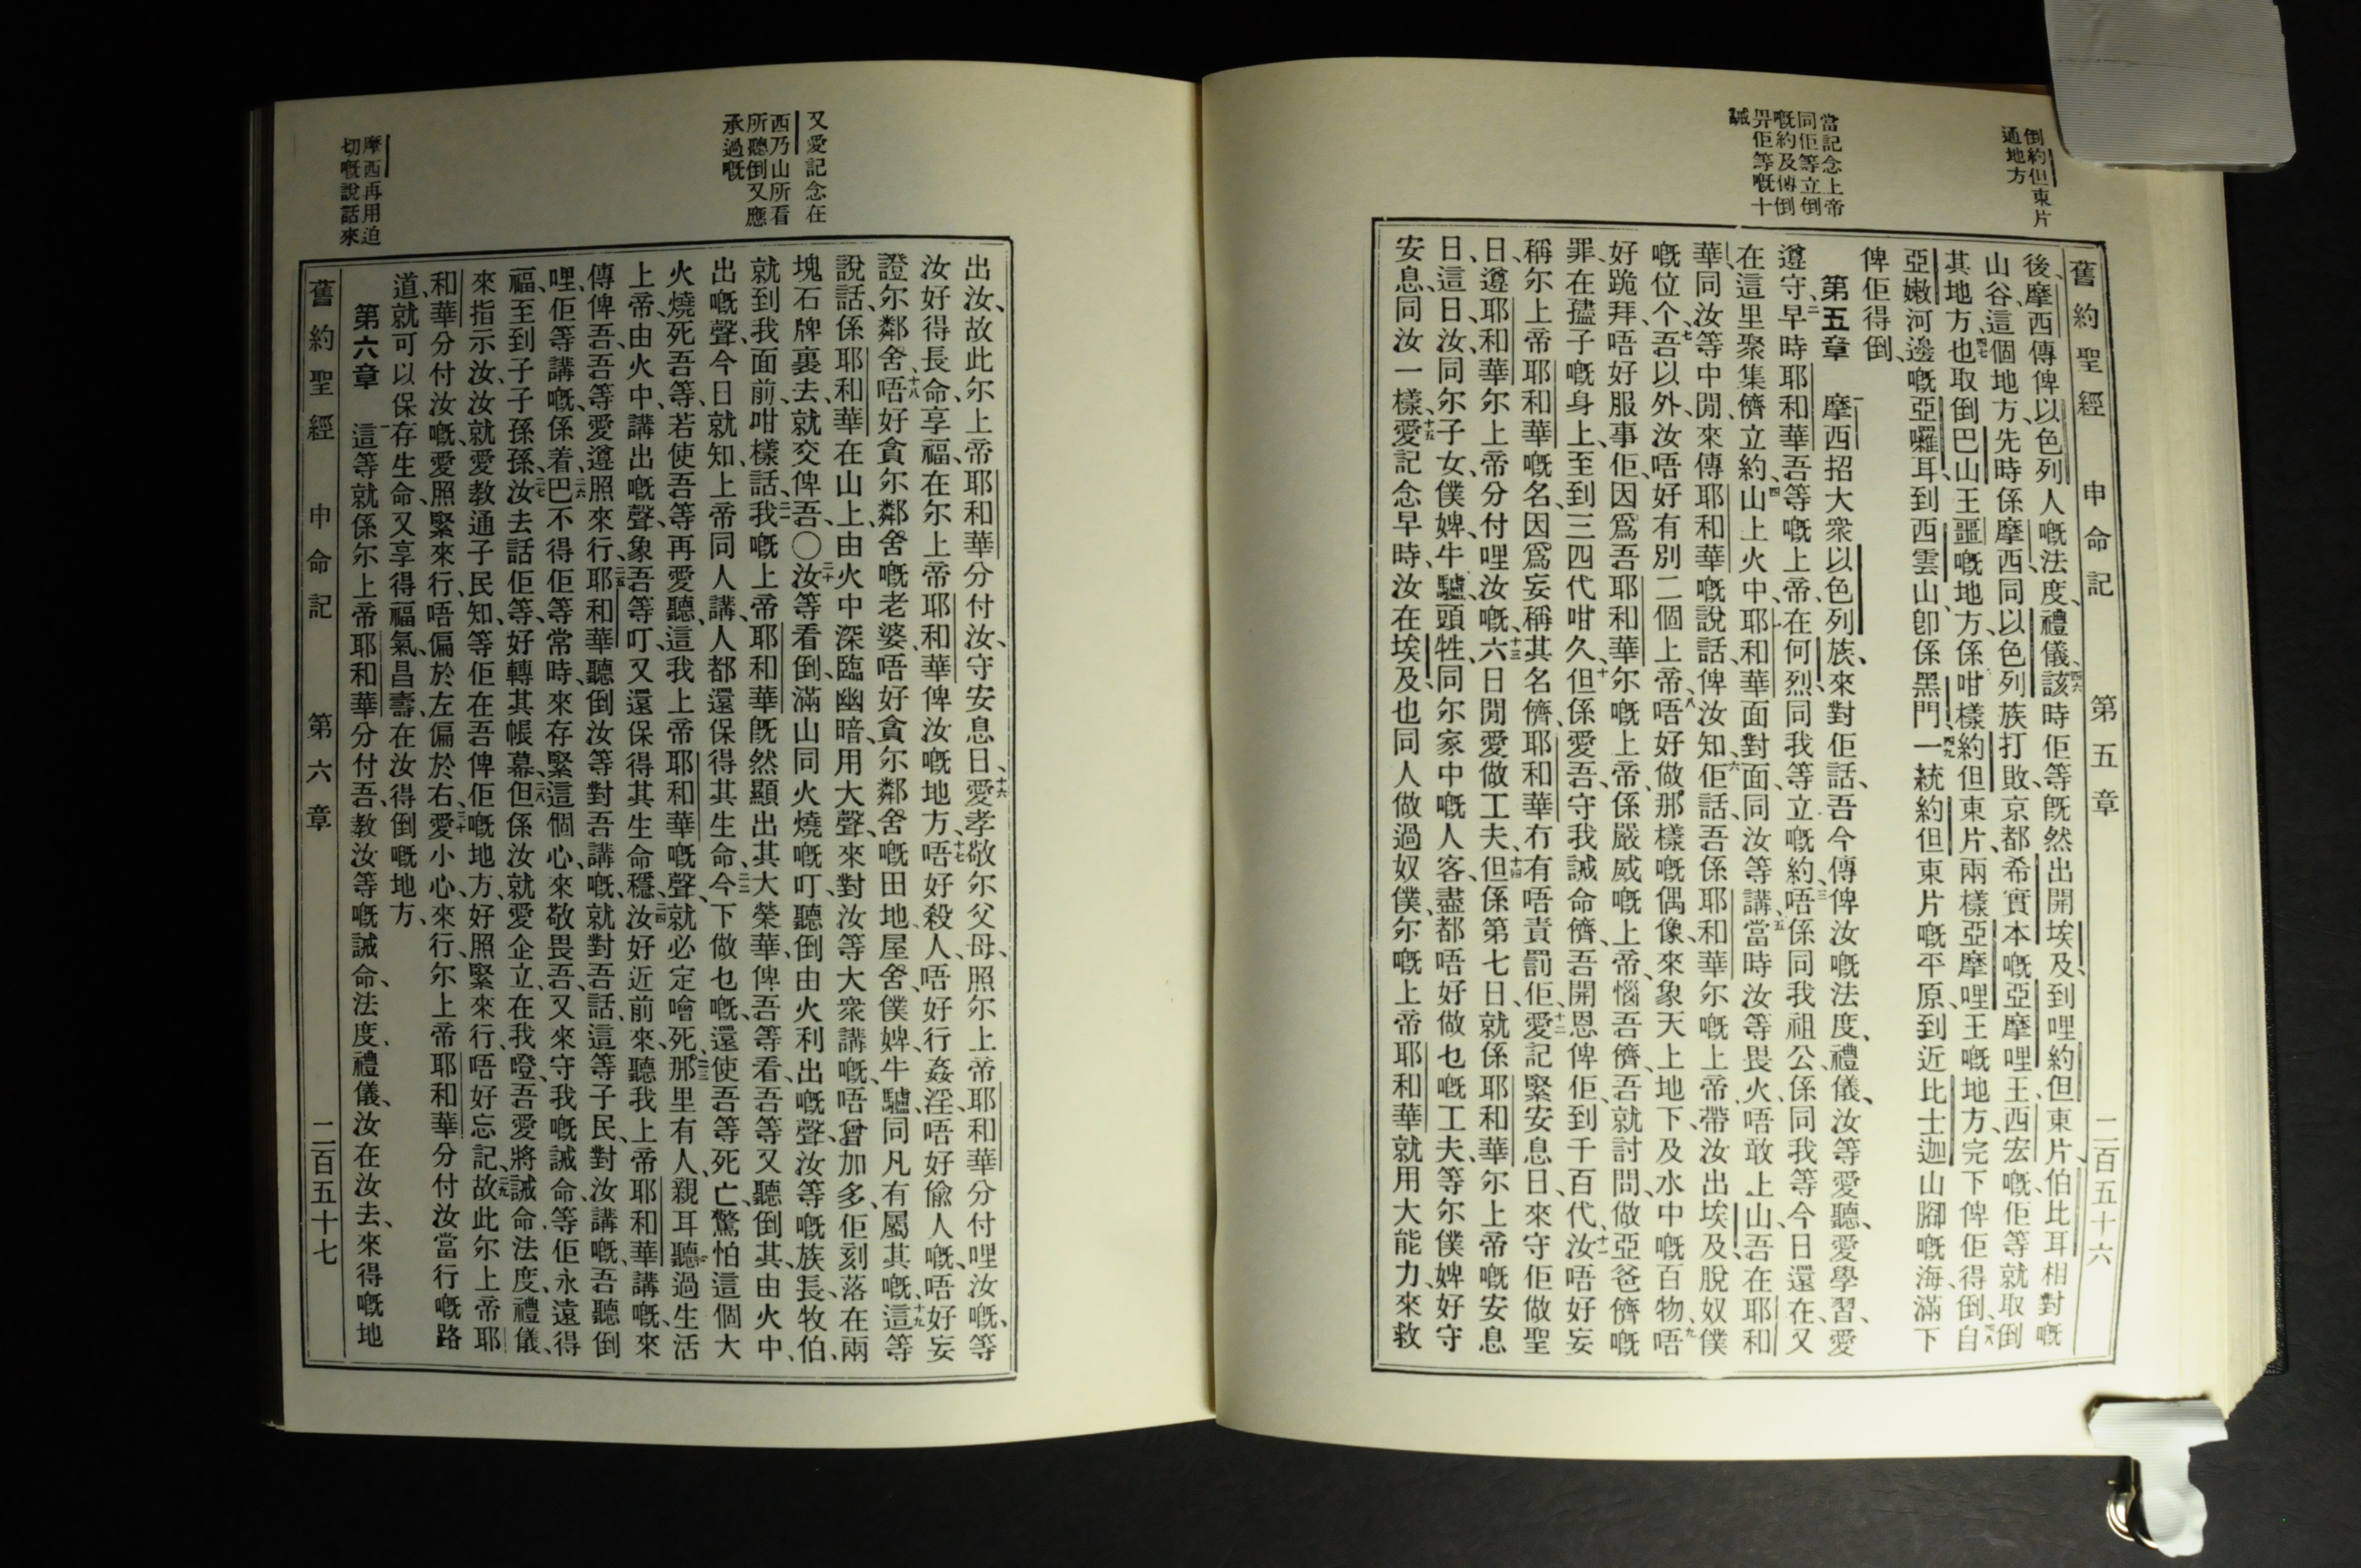 倒約但東片
通地方
當記念上帝
同佢等立倒
嘅約及傳倒
畀佢等嘅十
誡
舊約聖經 申命記 第五章 二百五十六
後、摩西傳俾以色列人嘅法度、禮儀、四六該時佢等旣然出開埃及、到哩約但東片、伯比耳相對嘅
山谷、這個地方、先時係摩西同以色列族打敗、京都希實本嘅亞摩哩王西宏嘅、佢等就取倒
其地方、四七也取倒巴山王噩嘅地方、係咁樣約但東片、兩樣亞摩哩王嘅地方、完下俾佢得倒、四八自
亞嫩河邊嘅亞囉耳、到西雲山、卽係黑門、四九一統約但東片嘅平原、到近比士迦山腳嘅海、滿下
俾佢得倒、
第五章 一摩西招大衆以色列族、來對佢話、吾今傳俾汝嘅法度、禮儀、汝等愛聽、愛學習、愛
遵守、二早時耶和華吾等嘅上帝、在何烈、同我等立嘅約、三唔係同我祖公、係同我等今日還在、又
在這里聚集儕立約、四山上火中、耶和華面對面、同汝等講、五當時汝等畏火、唔敢上山、吾在耶和
華、同汝等中閒、來傳耶和華嘅說話、俾汝知、六佢話、吾係耶和華尔嘅上帝、帶汝出埃及、脫奴僕
嘅位个、七吾以外、汝唔好有別二個上帝、八唔好做那樣嘅偶像、來象天上地下、及水中嘅百物、九唔
好跪拜、唔好服事佢、因爲吾耶和華尔嘅上帝、係嚴威嘅上帝、惱吾儕、吾就討問、做亞爸儕嘅
罪、在孻子嘅身上、至到三四代咁久、十但係愛吾、守我誡命儕、吾開恩俾佢、到千百代、十一汝唔好妄
稱尔上帝耶和華嘅名、因爲妄稱其名儕、耶和華冇有唔責罰佢、十二愛記緊安息日、來守佢做聖
日、遵耶和華尔上帝分付哩汝嘅、十三六日閒愛做工夫、十四但係第七日、就係耶和華尔上帝嘅安息
日、這日、汝、同尔子女、僕婢、牛驢、頭牲、同尔家中嘅人客、盡都唔好做乜嘅工夫、等尔僕婢好守
安息、同汝一樣、十五愛記念早時、汝在埃及、也同人做過奴僕、尔嘅上帝耶和華就用大能力、來救
又愛記念在
西乃山所看
所聽倒又應
承過嘅
摩西再用迫
切嘅說話來
出汝、故此尔上帝耶和華分付汝、守安息日、十六愛孝敬尔父母、照尔上帝耶和華分付哩汝嘅、等
汝好得長命、享福、在尔上帝耶和華俾汝嘅地方、十七唔好殺人、唔好行姦淫、唔好偷人嘅、唔好妄
證尔鄰舍、十八唔好貪尔鄰舍嘅老婆、唔好貪尔鄰舍嘅田地、屋舍、僕婢、牛驢、同凡有屬其嘅、十九這等
說話、係耶和華在山上、由火中深臨幽暗、用大聲、來對汝等大衆講嘅、唔曾加多、佢刻落在兩
塊石牌裏去、就交俾吾、〇二十汝等看倒、滿山同火燒嘅叮、聽倒由火利出嘅聲、汝等嘅族長、牧伯、
就到我面前、咁樣話、二一我嘅上帝、耶和華旣然顯出其大榮華、俾吾等看、吾等又聽倒其、由火中、
出嘅聲、今日就知、上帝同人講、人都還保得其生命、二二今下做乜嘅、還使吾等死亡、驚怕這個大
火燒死吾等、若使吾等再愛聽、這我上帝耶和華嘅聲、就必定噲死、二三那里有人、親耳聽過生活
上帝、由火中、講出嘅聲、象吾等叮、又還保得其生命穩、二四汝好近前來、聽我上帝耶和華講嘅、來
傳俾吾、吾等愛遵照來行、二五耶和華聽倒汝等對吾講嘅、就對吾話、這等子民、對汝講嘅、吾聽倒
哩、佢等講嘅、係着、二六巴不得佢等常時、來存緊這個心、來敬畏吾、又來守我嘅誡命、等佢永遠得
福、至到子子孫孫、二七汝去話佢等、好轉其帳幕、二八但係汝就愛企立、在我噔、吾愛將誡命、法度、禮儀、
來指示汝、汝就愛教通子民知、等佢在吾俾佢嘅地方、好照緊來行、唔好忘記、二九故此尔上帝耶
和華分付汝嘅、愛照緊來行、唔偏於左、偏於右、三十愛小心、來行、尔上帝耶和華分付汝當行嘅路
道、就可以保存生命、又享得福氣、昌壽、在汝得倒嘅地方、
第六章 一這等就係尔上帝耶和華分付吾、教汝等嘅誡命、法度、禮儀、汝在汝去、來得嘅地
舊約聖經 申命記 第六章 二百五十七